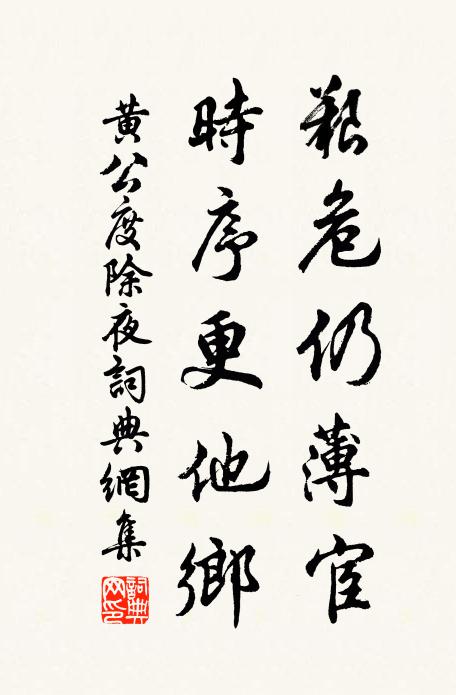 艱危仍薄宦
時序更他鄉
黃公度除夜詞典網集
詞典網印